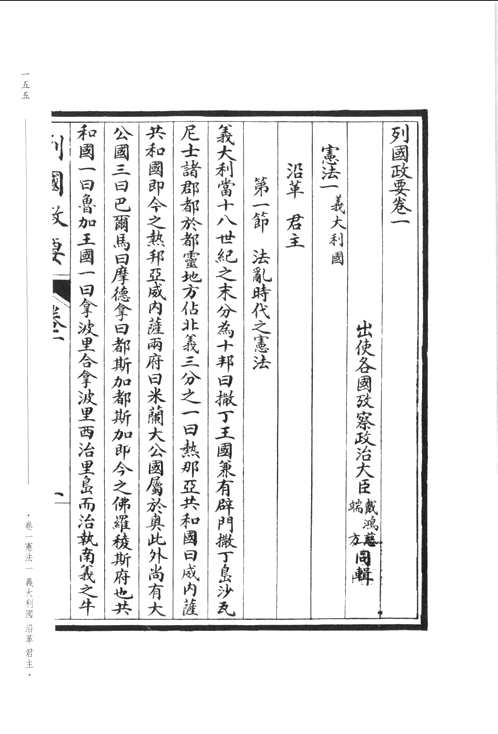 列國政要卷一
出使各國攷察政治大臣戴鴻慈端方同輯
憲法一 義大利國
沿革 君主
第一節 法亂時代之憲法
義大利當十八世紀之末分為十邦曰撒丁王國兼有辟門撒丁島沙瓦
尼士諸郡都於都靈地方佔北義三分之一曰熱那亞共和國曰威內薩
共和國即今之熱那亞威內薩兩府曰米蘭大公國屬於奥此外尚有大
公國三曰巴爾馬曰摩德拿曰都斯加都斯加即今之佛羅稜斯府也共
和國一曰魯加王國一曰拿波里合拿波里西治里島而治執南義之牛
列國政要 卷一 一
一五五
·卷一憲法一 義大利國 沿革 君主·